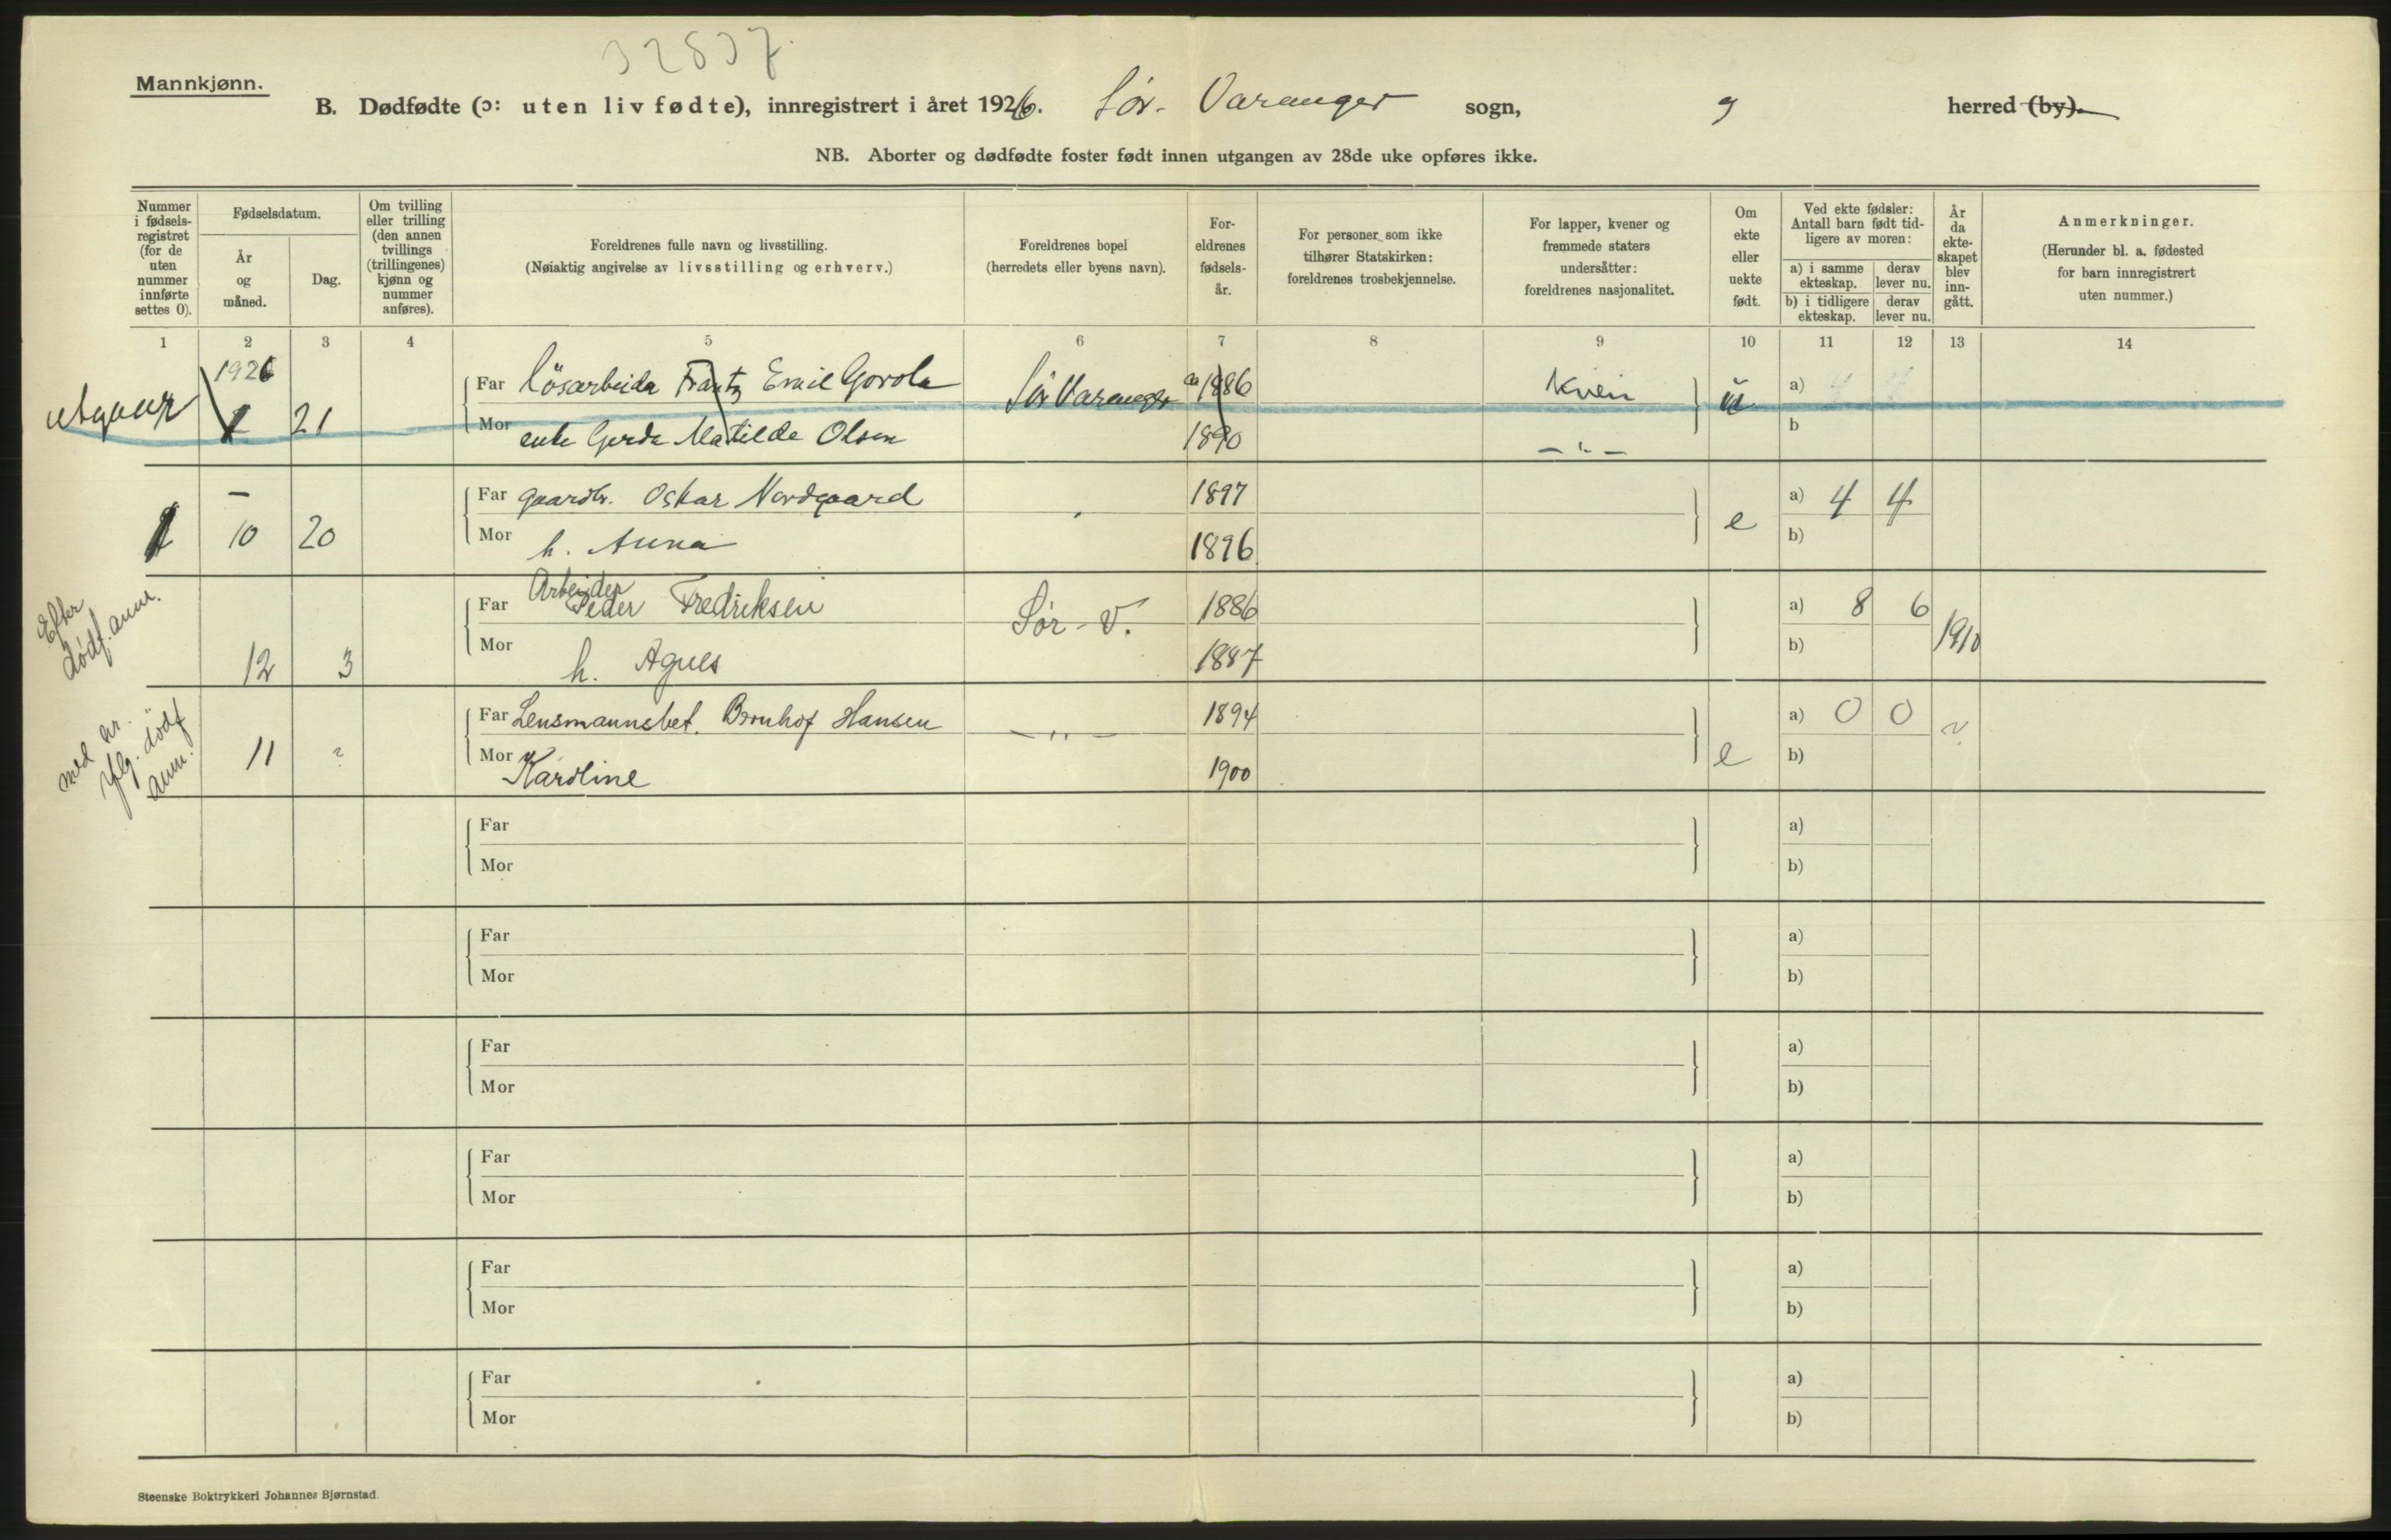 32837.
Mannkjønn.
B. Dødfødte (ɔ: uten liv fødte), innregistrert i året 1926. Sør-Varanger sogn, herred (by).
NB. Aborter og dødfødte foster født innen utgangen av 28de uke opføres ikke.
Nummer i fødsels-registret (for de uten nummer innførte settes 0).
Fødselsdatum.
År og måned.
Dag.
Om tvilling eller trilling (den annen tvillings (trillingenes) kjønn og nummer anføres).
Foreldrenes fulle navn og livsstilling.
(Nøiaktig angivelse av livsstilling og erhverv.)
Foreldrenes bopel
(herredets eller byens navn).
For-eldrenes fødsels-år.
For personer som ikke tilhører Statskirken: foreldrenes trosbekjennelse.
For lapper, kvener og fremmede staters undersåtter: foreldrenes nasjonalitet.
Om ekte eller uekte født.
Ved ekte fødsler: Antall barn født tid-ligere av moren:
a) i samme ekteskap.
derav lever nu.
b) i tidligere ekteskap.
derav lever nu.
År da ekte-skapet blev inn-gått.
Anmerkninger.
(Herunder bl. a. fødested for barn innregistrert uten nummer.)
1 2 3 4 5 6 7 8 9 10 11 12 13 14
1926
utgaar 1 21
Far Lösarbeider Frantz Emil Gorola Sör Varanger 1886 Kven u a)
Mor enke Gerda Matilde Olsen 1890 — " — b
1 — 10 20
Far gaardbr. Oskar Nordgaard 1897 e a) 4 4
Mor h. Anna 1896 b)
Efter dödf. anm. 12 3
Far Arbeider Peder Fredriksen Sør-V. 1886 a) 8 6 1910
Mor h. Agnes 1887 b)
med nr. iflg. dödf anm. 11 ?
Far Lensmannsbet. Bernhof Hansen — " — 1894 e a) 0 0 ?
Mor Karoline 1900 b)
Far a)
Mor b)
Far a)
Mor b)
Far a)
Mor b)
Far a)
Mor b)
Far a)
Mor b)
Far a)
Mor b)
Steenske Boktrykkeri Johannes Bjørnstad.